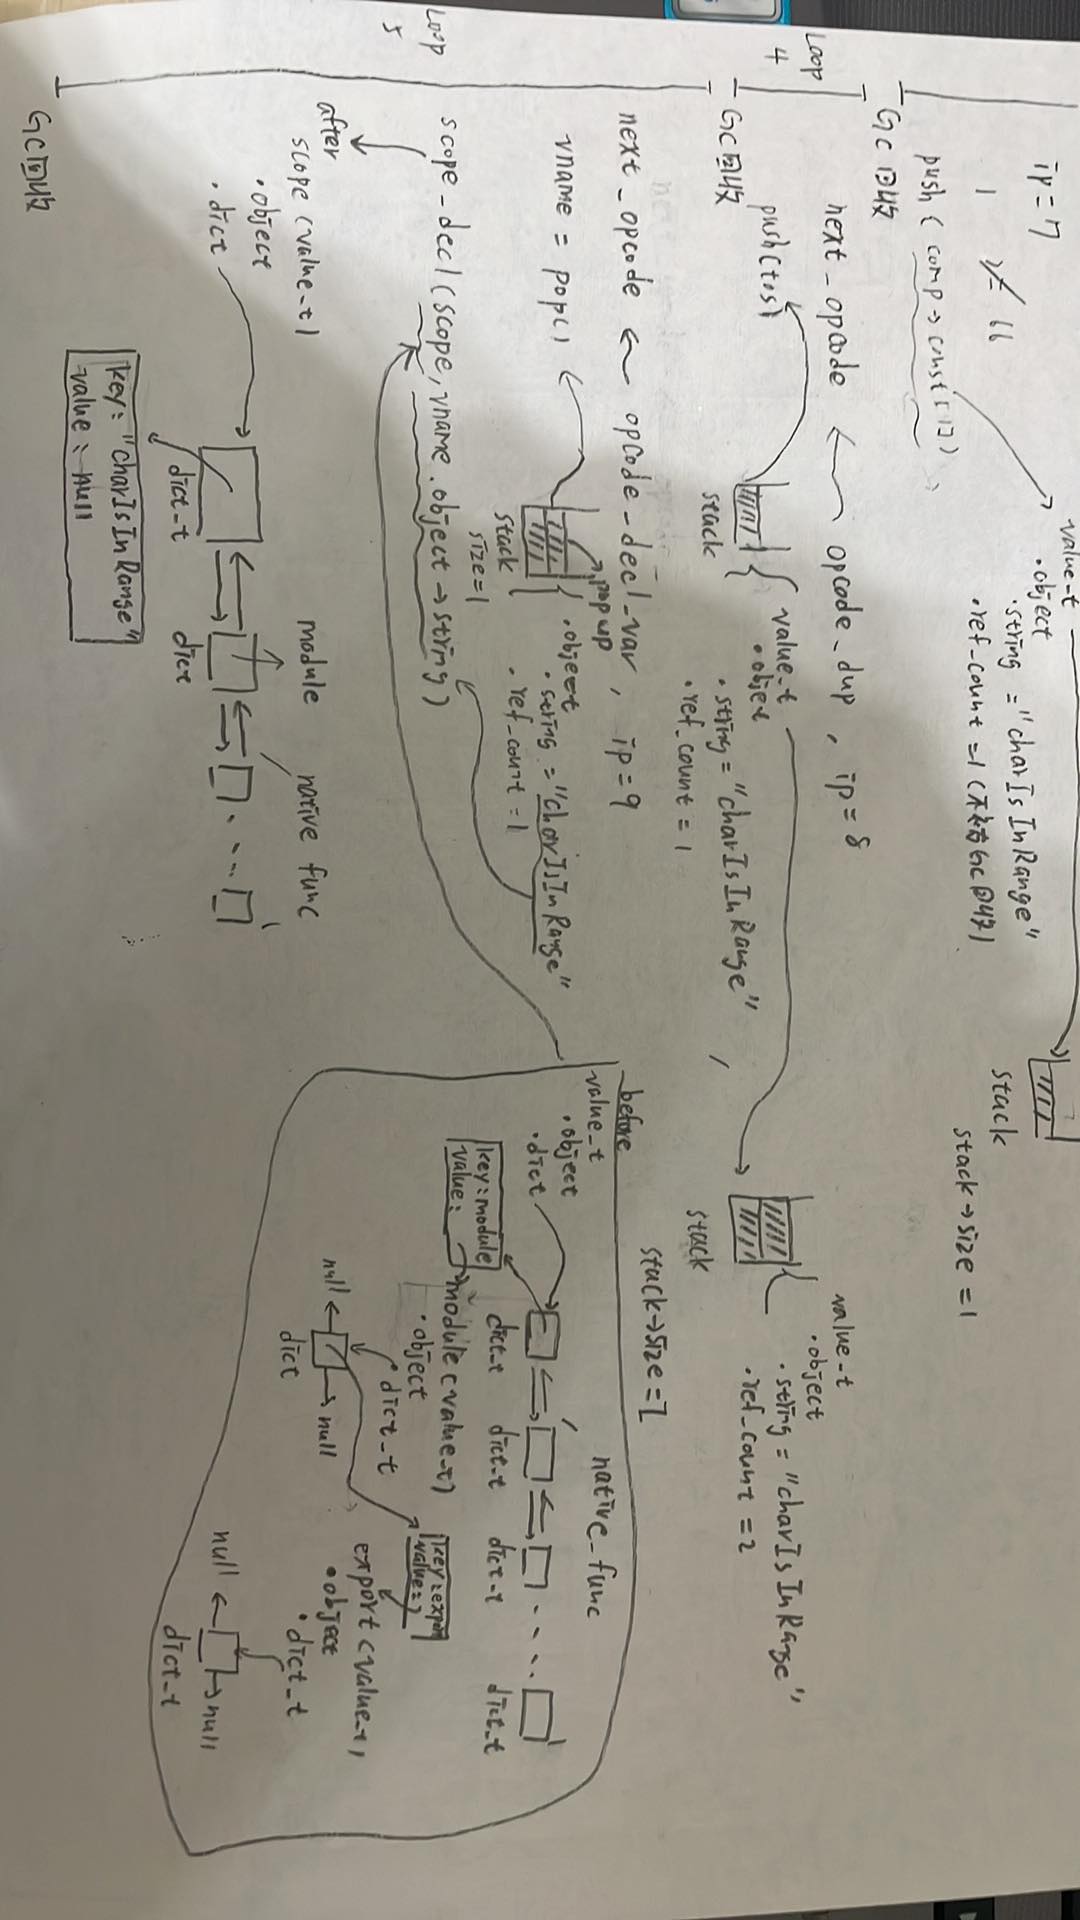 ip = 7
value-t
·object
·string = "charIsInRange"
·ref-count = 1 (不被GC回收)
push (comp→const[1])
stack
stack→size = 1
GC回收
Loop 4
next_opcode ← opcode_dup , ip = 8
push(tos)
stack
value-t
·objet
·string = "charIsInRange"
·ref_count = 1
stack
value-t
·object
·string = "charIsInRange"
·ref_count = 2
stack→size = 2
GC回收
Loop 5
next_opcode ← opcode-decl-var , ip = 9
vname = pop()
pop up
stack
size=1
·object
·string = "charIsInRange"
·ref_count = 1
scope_decl (scope, vname.object→string)
before
value-t
·object
·dict
native_func
dict-t
dict-t
dict-t
dict-t
key:module
value:
module (value-t)
·object
·dict-t
null
null
dict
value:
export (value-t)
·object
·dict-t
null
null
dict-t
after
scope (value-t)
·object
·dict
module
native func
dict-t
dict
key: "charIsInRange"
value: null
GC回收